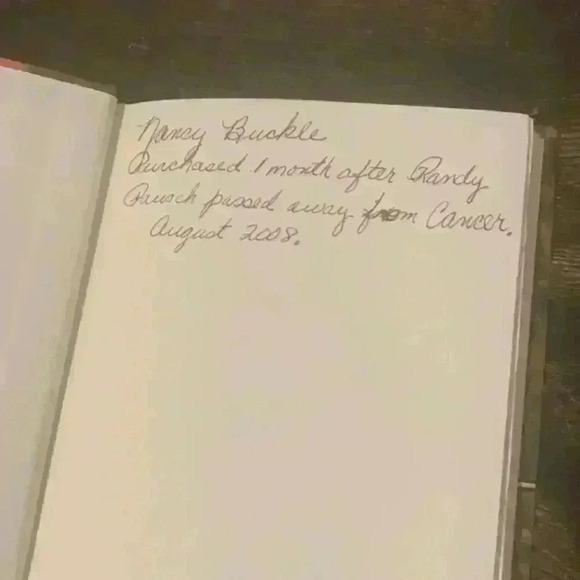 Nancy Buckle
Purchased 1 month after Randy
Pausch passed away from Cancer.
August 2008.